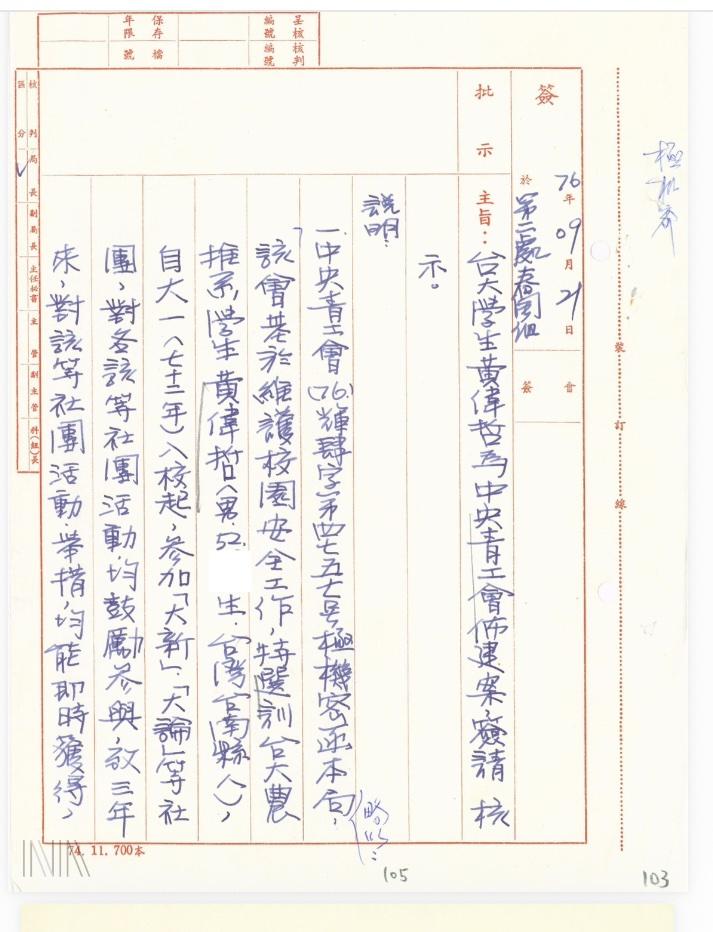 呈核核判
編號編號
保存檔
年限號
核判區分
局長
副局長
主任秘書
主管
副主管
科(組)長
極机密
裝訂線
簽
於76年09月21日
第二處春風組
會簽
批示
主旨：台大學生黃偉哲為中央青工會佈建案，簽請 核
示。
說明：
一、中央青工會(76)輝肆字第四七五七号極機密函本局，(略以：
該會基於維護校園安全工作，特選訓台大農
推系學生黃偉哲(男.52. 生.台灣台南縣人)，
自大一(七十二年)入校起，參加「大新」、「大論」等社
團，對各該等社團活動均鼓勵參與，故三年
來，對該等社團活動、舉措，均能即時獲得，
74.11.700本
105
103